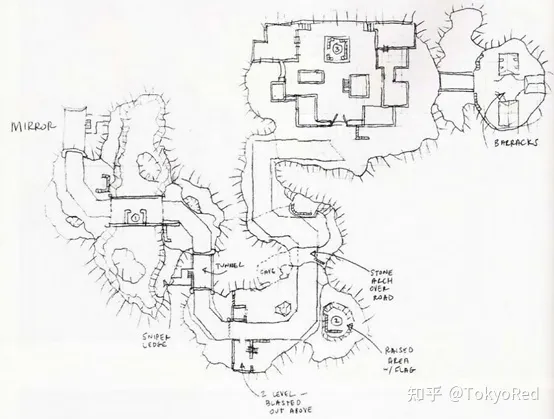 MIRROR
BARRACKS
3
1
TUNNEL
CAVE
STONE
ARCH
OVER
ROAD
SNIPER
LEDGE
2
RAISED
AREA
W/ FLAG
2 LEVEL –
BLASTED
OUT ABOVE
知乎 @TokyoRed